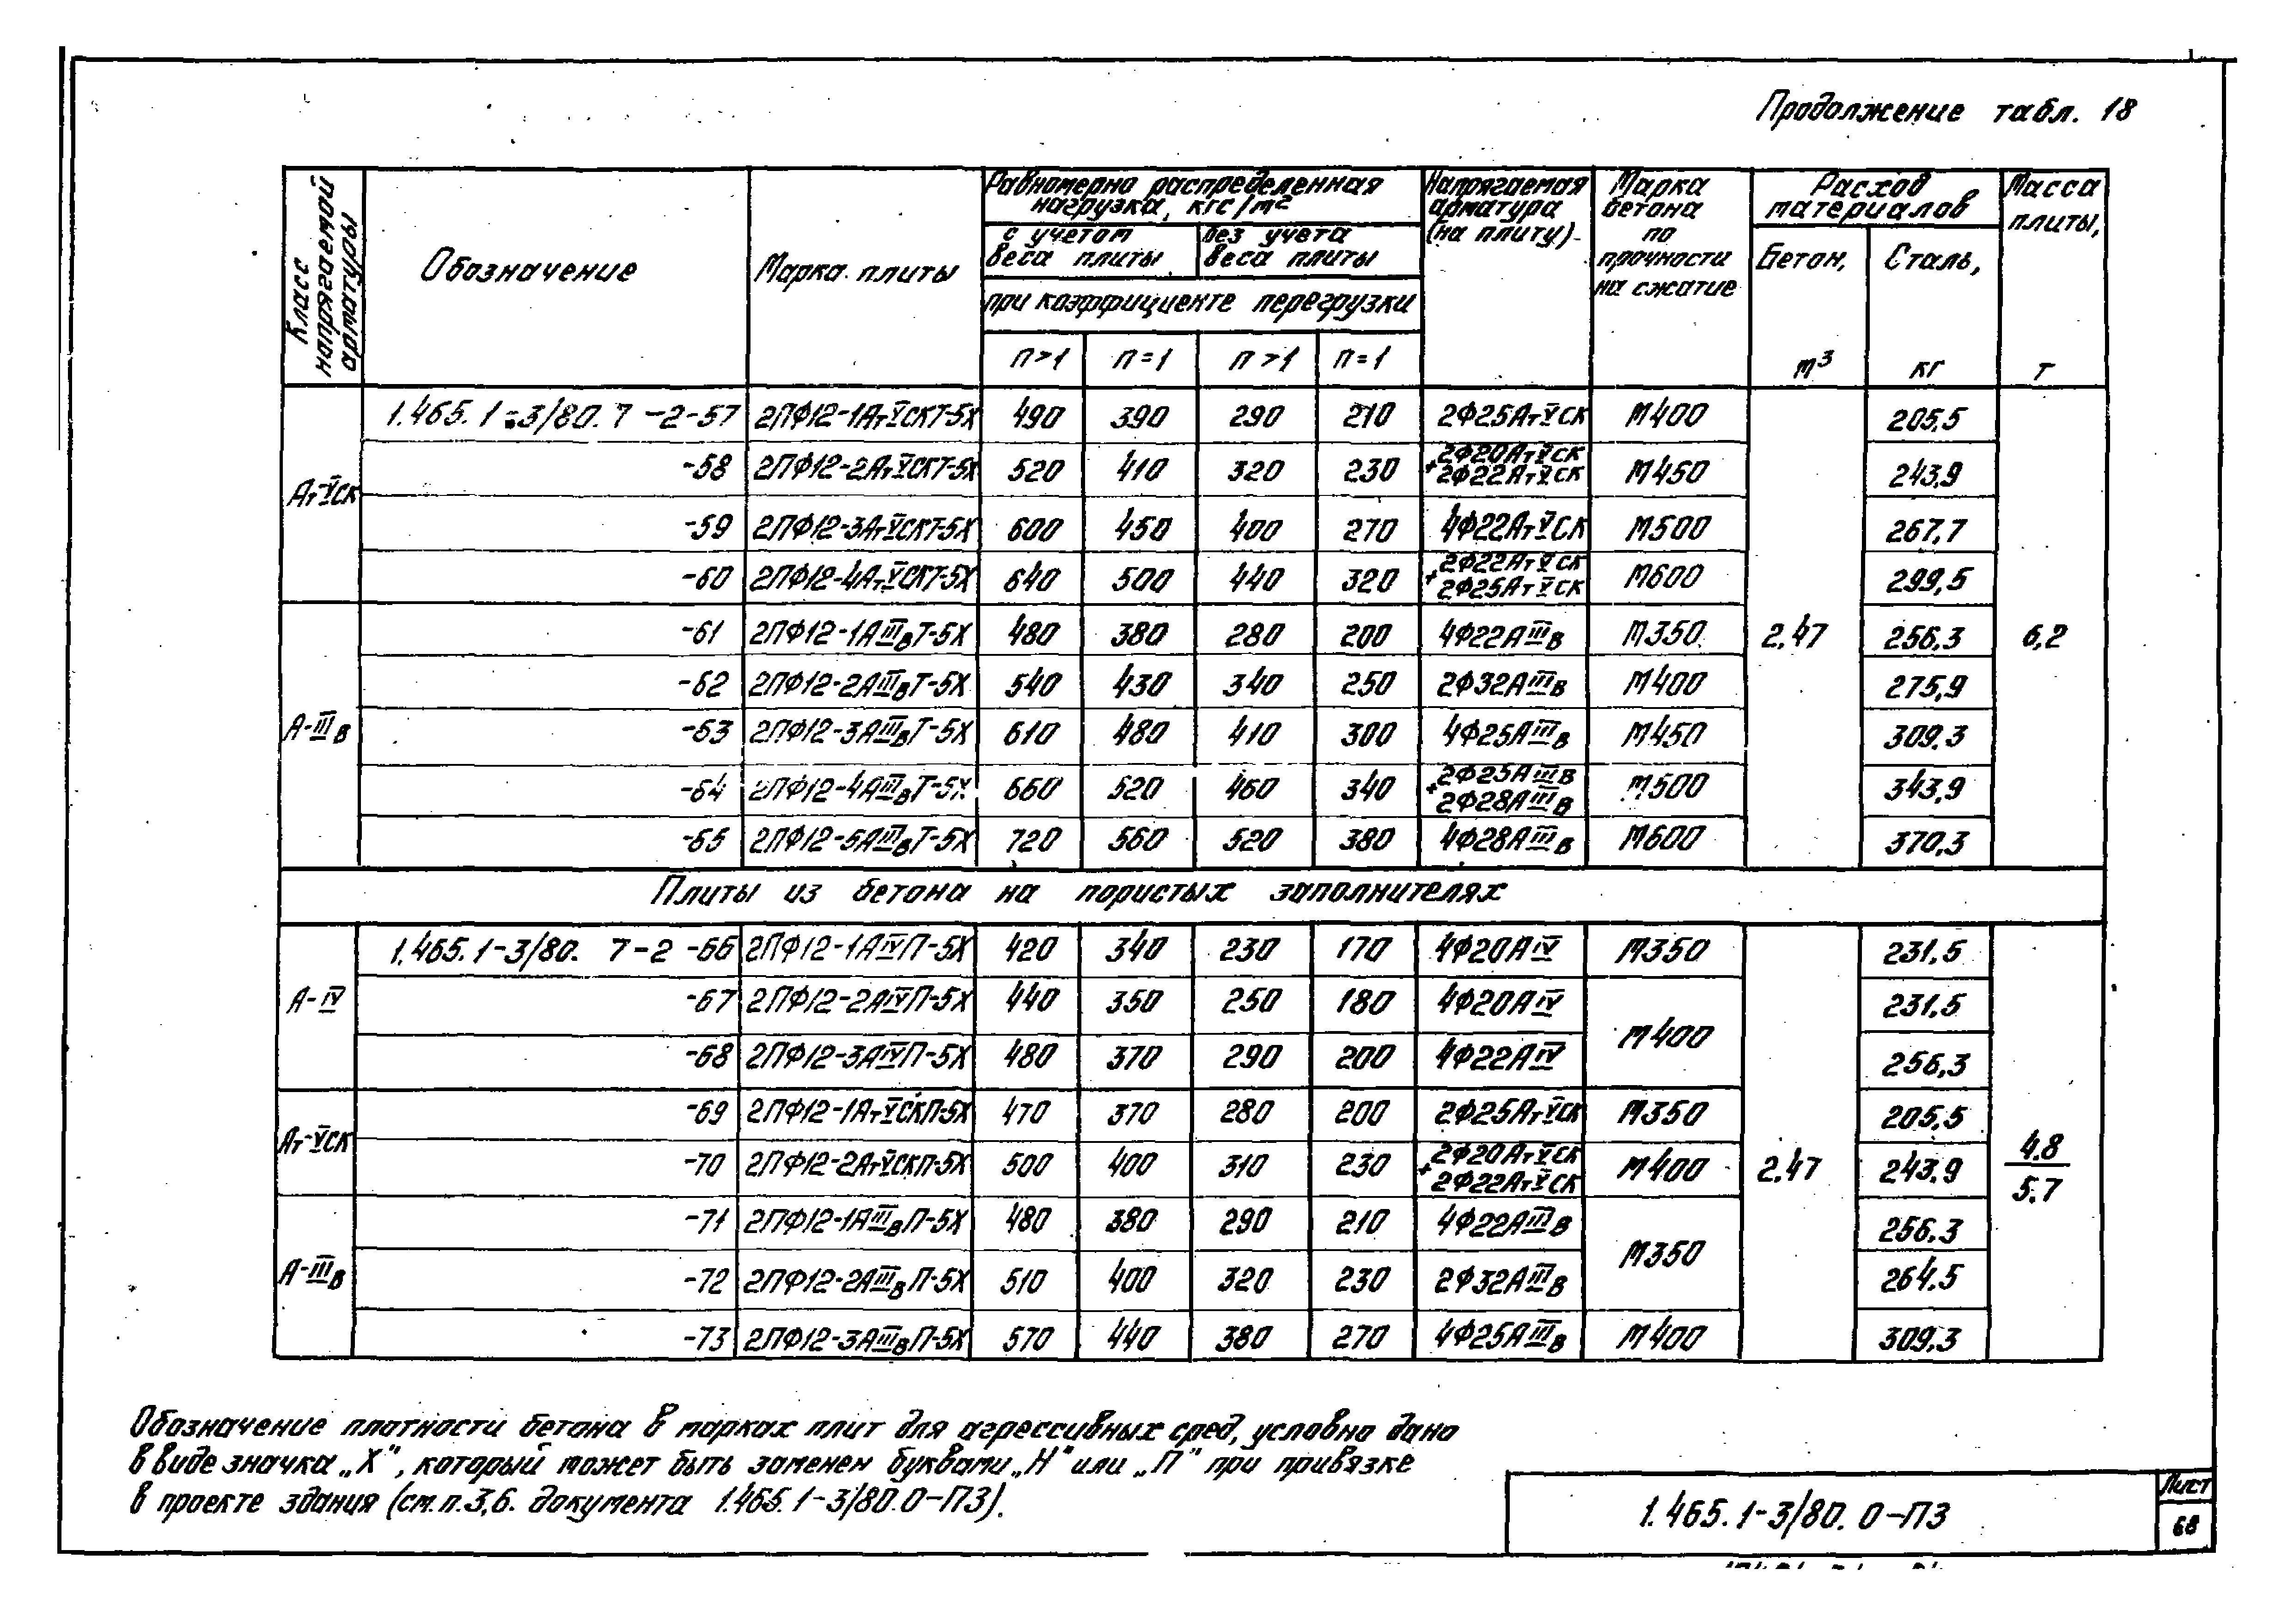 Продолжение табл. 18
Класс напрягаемой арматуры
Обозначение
Марка плиты
Равномерно распределенная
нагрузка, кгс/м²
с учетом
веса плиты
без учета
веса плиты
при коэффициенте перегрузки
п>1 п=1 п>1 п=1
Напрягаемая
арматура
(на плиту)
Марка
бетона
по
прочности
на сжатие
Расход
материалов
Бетон,
м³
Сталь,
кг
Масса
плиты,
т
Ат-VСК
1.465.1-3/80.7-2-57 2ПФ12-1АтVСКТ-5Х 490 390 290 210 2Ф25АтVСК М400 205,5
-58 2ПФ12-2АтVСКТ-5Х 520 410 320 230 2Ф20АтVСК + 2Ф22АтVСК М450 243,9
-59 2ПФ12-3АтVСКТ-5Х 600 450 400 270 4Ф22АтVСК М500 267,7
-60 2ПФ12-4АтVСКТ-5Х 640 500 440 320 2Ф22АтVСК + 2Ф25АтVСК М600 299,5
А-IIIв
-61 2ПФ12-1АIIIвТ-5Х 480 380 280 200 4Ф22АIIIв М350 2,47 256,3 6,2
-62 2ПФ12-2АIIIвТ-5Х 540 430 340 250 2Ф32АIIIв М400 275,9
-63 2ПФ12-3АIIIвТ-5Х 610 480 410 300 4Ф25АIIIв М450 309,3
-64 2ПФ12-4АIIIвТ-5Х 660 520 460 340 2Ф25АIIIв + 2Ф28АIIIв М500 343,9
-65 2ПФ12-5АIIIвТ-5Х 720 560 520 380 4Ф28АIIIв М600 370,3
Плиты из бетона на пористых заполнителях
А-IV
1.465.1-3/80. 7-2 -66 2ПФ12-1АIVП-5Х 420 340 230 170 4Ф20АIV М350 231,5
-67 2ПФ12-2АIVП-5Х 440 350 250 180 4Ф20АIV М400 231,5
-68 2ПФ12-3АIVП-5Х 480 370 290 200 4Ф22АIV 256,3
Ат-VСК
-69 2ПФ12-1АтVСКП-5Х 470 370 280 200 2Ф25АтVСК М350 205,5
-70 2ПФ12-2АтVСКП-5Х 500 400 310 230 2Ф20АтVСК + 2Ф22АтVСК М400 2,47 243,9 4,8 5,7
А-IIIв
-71 2ПФ12-1АIIIвП-5Х 480 380 290 210 4Ф22АIIIв М350 256,3
-72 2ПФ12-2АIIIвП-5Х 510 400 320 230 2Ф32АIIIв 264,5
-73 2ПФ12-3АIIIвП-5Х 570 440 380 270 4Ф25АIIIв М400 309,3
Обозначение плотности бетона в марках плит для агрессивных сред, условно дано
в виде значка „Х", который может быть заменен буквами „Н" или „П" при привязке
в проекте здания (см.п.3,6. документа 1.465.1-3/80.0-ПЗ).
1.465.1-3/80. 0-ПЗ
Лист
68